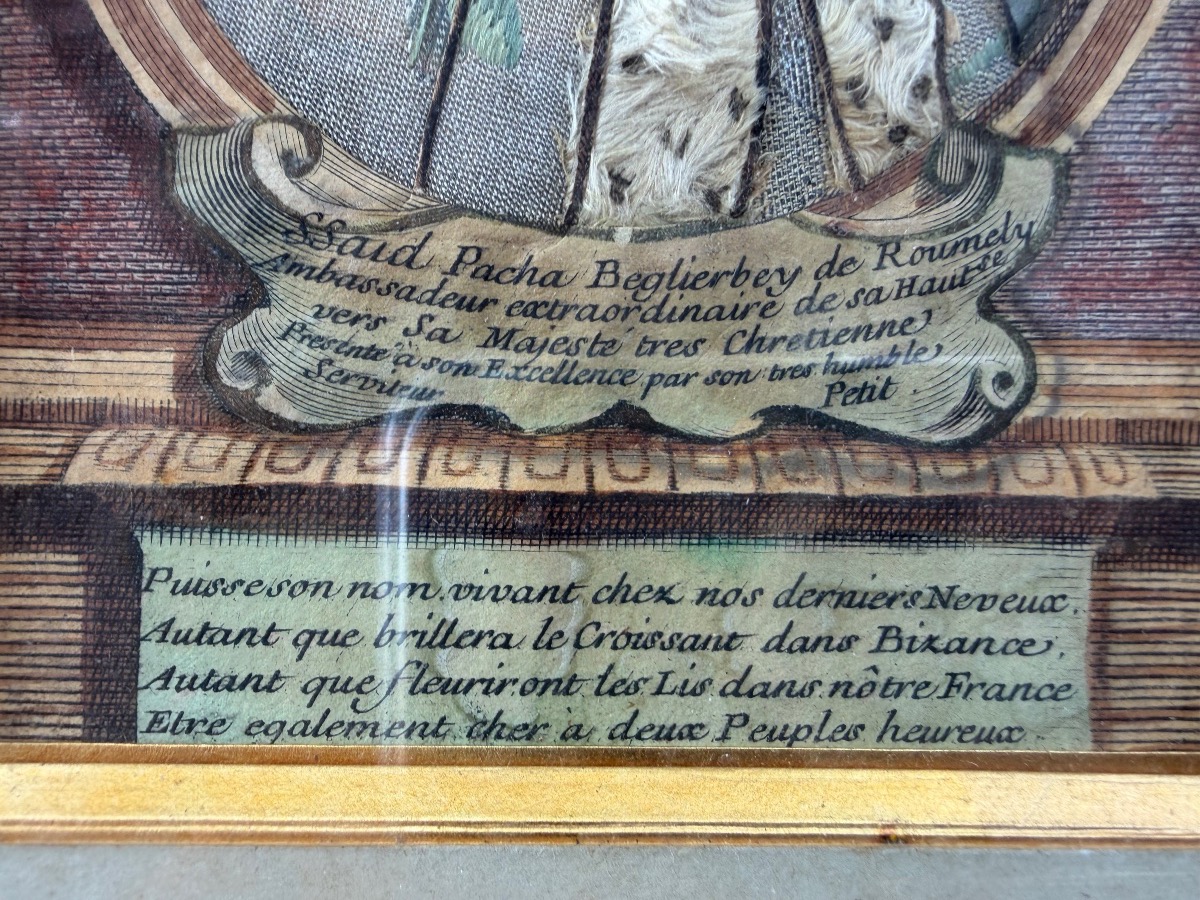 SSaid Pacha Beglierbey de Roumely
Ambassadeur extraordinaire de sa Haut.se
vers Sa Majesté tres Chretienne
Presenté à son Excellence par son tres humble
Serviteur Petit.
Puisse son nom vivant chez nos derniers Neveux.
Autant que brillera le Croissant dans Bizance,
Autant que fleuriront les Lis dans nôtre France
Etre egalement cher à deux Peuples heureux.